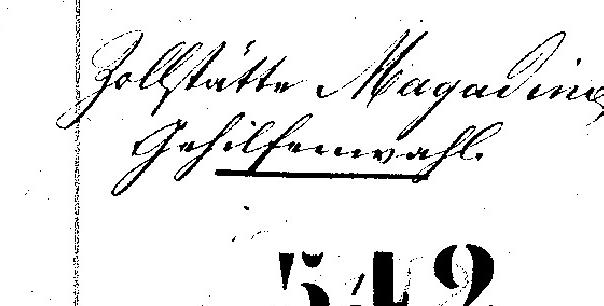 Zollstätte Magadino,
Gehilfenwahl.
542